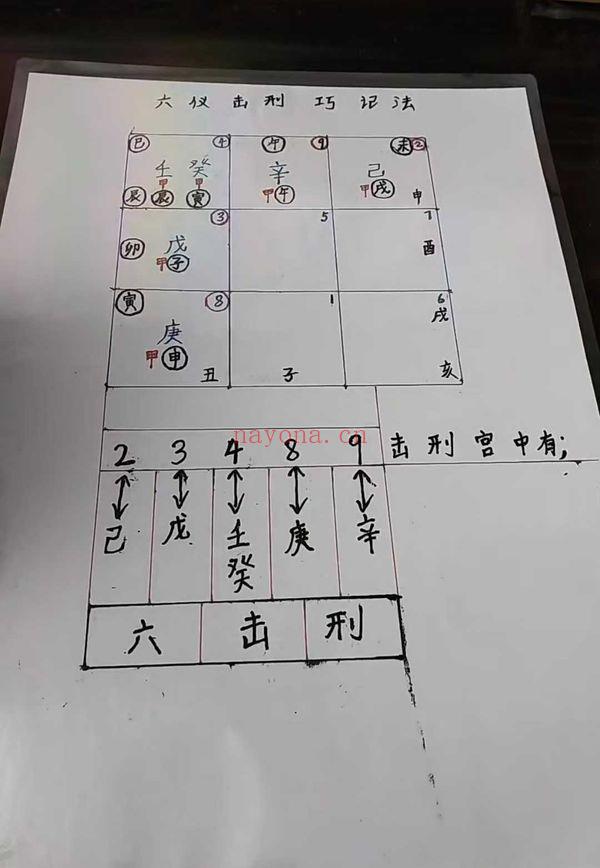 六仪击刑巧记法
巳 4 午 9 未 2
壬 癸 辛 己
甲 甲 甲午 甲戌 申
辰 辰 寅
3 5 7
卯 戊 酉
甲子
寅 8 1 6
庚 戌
甲申 丑 子 亥
nayona.cn
2 3 4 8 9 击刑宫中有;
己 戊 壬 庚 辛
癸
六击刑